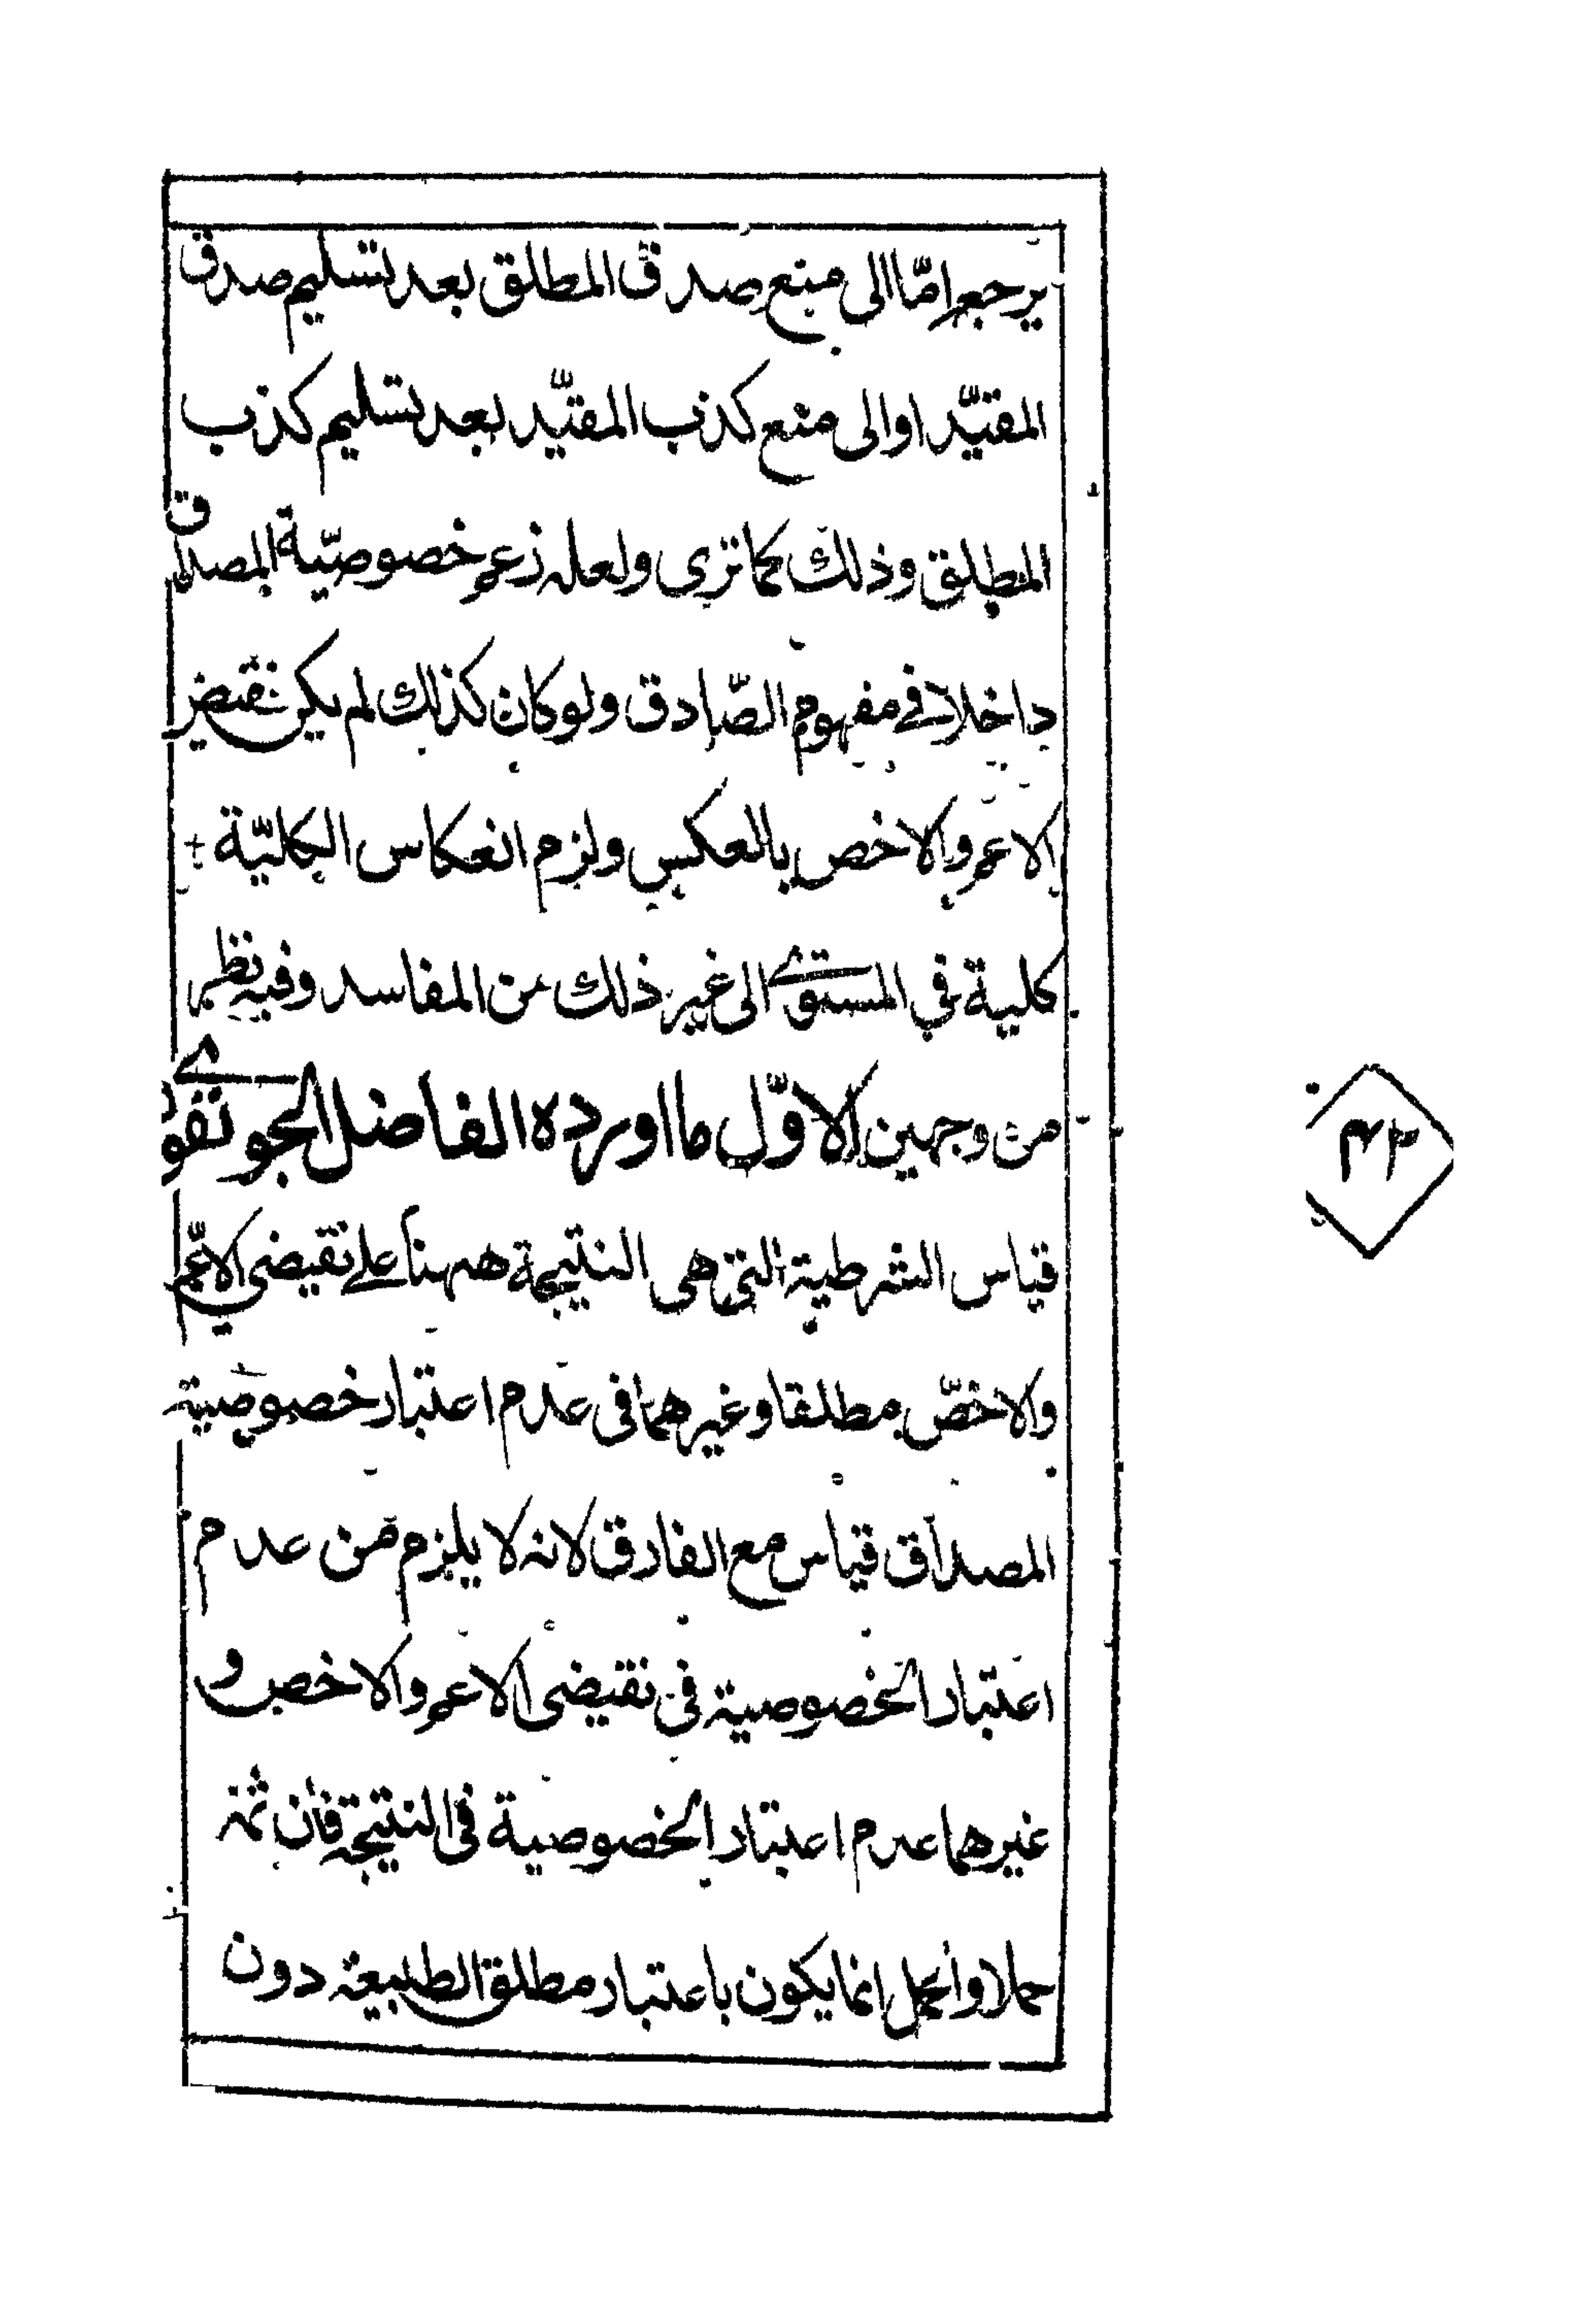 يرجع امّا الى منع صدق المطلق بعد تسليم صدق
المقيّد او الى منع كذب المقيّد بعد تسليم كذب
المطلق وذلك كما ترى ولعله زعم خصوصيّة المصداق
داخلا في مفهوم الصّادق ولو كان كذلك لم يكن نقيض
الاعم والاخص بالعكس ولزم انعكاس الكليّة
كلية في المستوے الى غير ذلك من المفاسد وفيه نظر
من وجهين الاوّل ما اورده الفاضل الجونفورے
قياس الشرطية التي هى النتيجة ههنا علے نقيضى الاعّم
والاخصّ مطلقا وغيرهما فى عدم اعتبار خصوصية
المصداق قياس مع الفارق لانه لا يلزم من عدم
اعتبار الخصوصية في نقيضى الاعم والاخص و
غيرهما عدم اعتبار الخصوصية فى النتيجة فان ثمه
حملا والحمل انما يكون باعتبار مطلق الطبيعة دون
۴۳